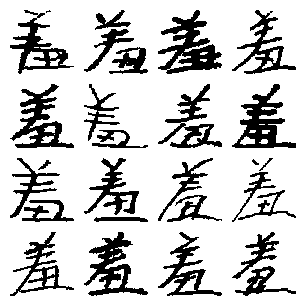 羞羞羞羞
羞羞羞羞
羞羞羞羞
羞羞羞羞